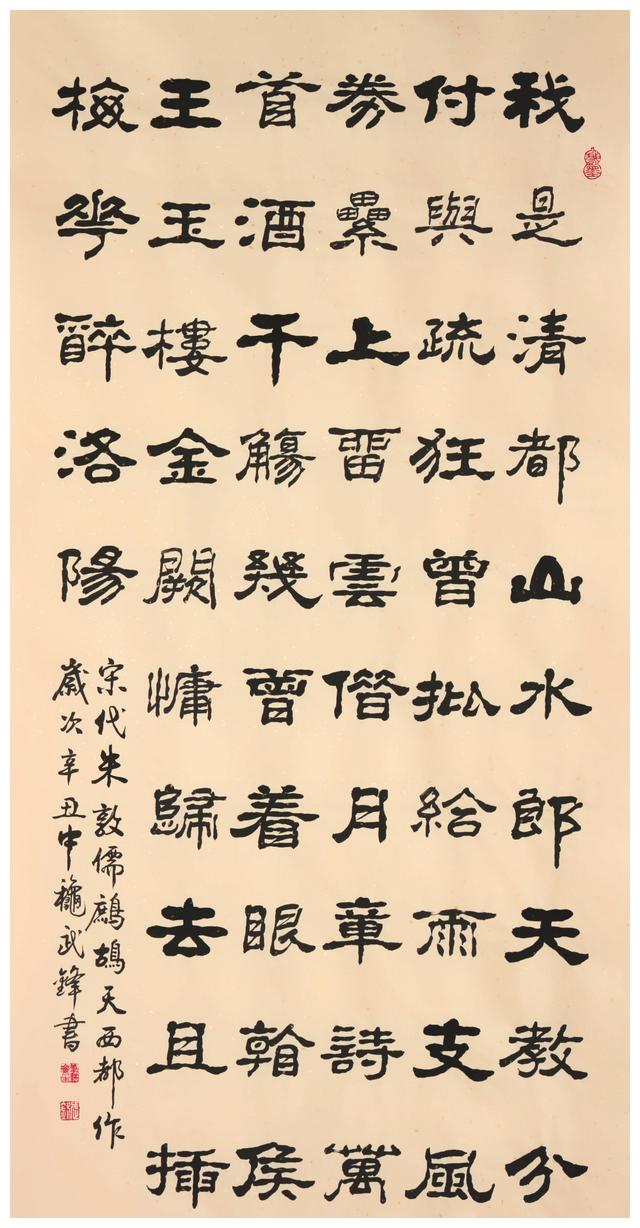 我是清都山水郎天教分
付與疏狂曾批給雨支風
券纍上畱雲借月章詩萬
首酒千觴幾曾着眼看侯
王玉樓金闕慵歸去且插
梅花醉洛陽
宋代朱敦儒鷓鴣天西都作
歲次辛丑中穐武鋒書